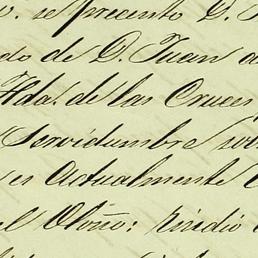 se presento D.
do de D. Juan a
Hda. de las Cruces
Servidumbre
es actualmente
el Otoño: rindió